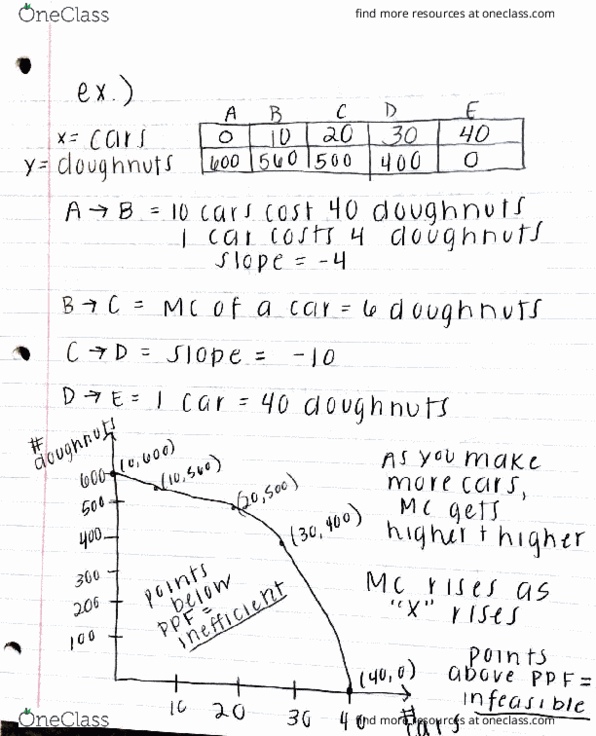 OneClass
find more resources at oneclass.com
ex.)
A B C D E
x= cars 0 10 20 30 40
y= doughnuts 600 560 500 400 0
A → B = 10 cars cost 40 doughnuts
1 car costs 4 doughnuts
slope = -4
B → C = MC of a car = 6 doughnuts
C → D = slope = -10
D → E = 1 car = 40 doughnuts
# doughnuts
(0,600)
(10,560)
(20,500)
(30,400)
(40,0)
600
500
400
300
200
100
10 20 30 40
# cars
points
below
PPF =
inefficient
As you make
more cars,
MC gets
higher + higher
MC rises as
"X" rises
points
above PPF =
infeasible
OneClass
find more resources at oneclass.com